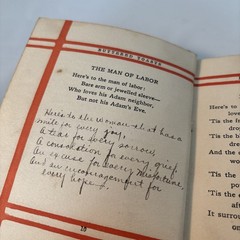 BUFFOONS TOASTS
THE MAN OF LABOR
Here's to the man of labor:
Bare arm or jewelled sleeve—
Who loves his Adam neighbor,
But not his Adam's Eve.
Here's to the Woman that has a
smile for every joy,
A tear for every sorrow
A consolation for every grief
An excuse for every misfortune
And an encouragement for
every hope
10
Here's to
'Tis the f
'Tis the d
'Tis the b
And the s
When a
But there
'Tis s
'Tis the
It surro
on